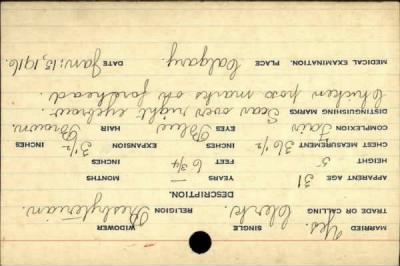 MARRIED Yes. SINGLE WIDOWER
TRADE OR CALLING Clerk. RELIGION Presbyterian.
DESCRIPTION.
APPARENT AGE 31 YEARS — MONTHS
HEIGHT 5 FEET 6 3/4 INCHES
CHEST MEASUREMENT 36 1/2 INCHES EXPANSION 3 1/2 INCHES
COMPLEXION Fair EYES Blue HAIR Brown
DISTINGUISHING MARKS Scar over right eyebrow.
Chicken pox marks on forehead.
MEDICAL EXAMINATION. PLACE Calgary. DATE Jan: 15, 1916.